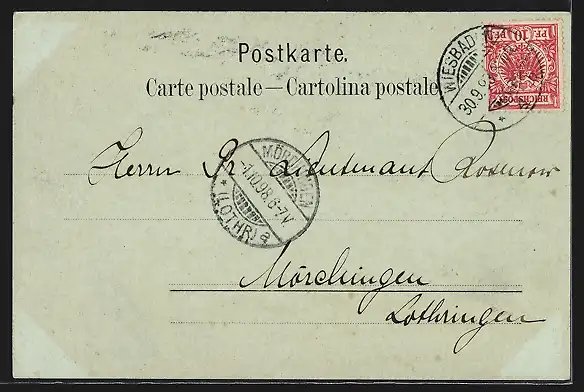 Postkarte.
Carte postale — Cartolina postale
WIESBAD
30.9.
REICHSPOST
PF 10 PF
Herrn Pr Lieutenant Rosenow
MÖRCHINGEN
1.10.98.6-7V
* (LOTHR) a
Mörchingen
Lothringen